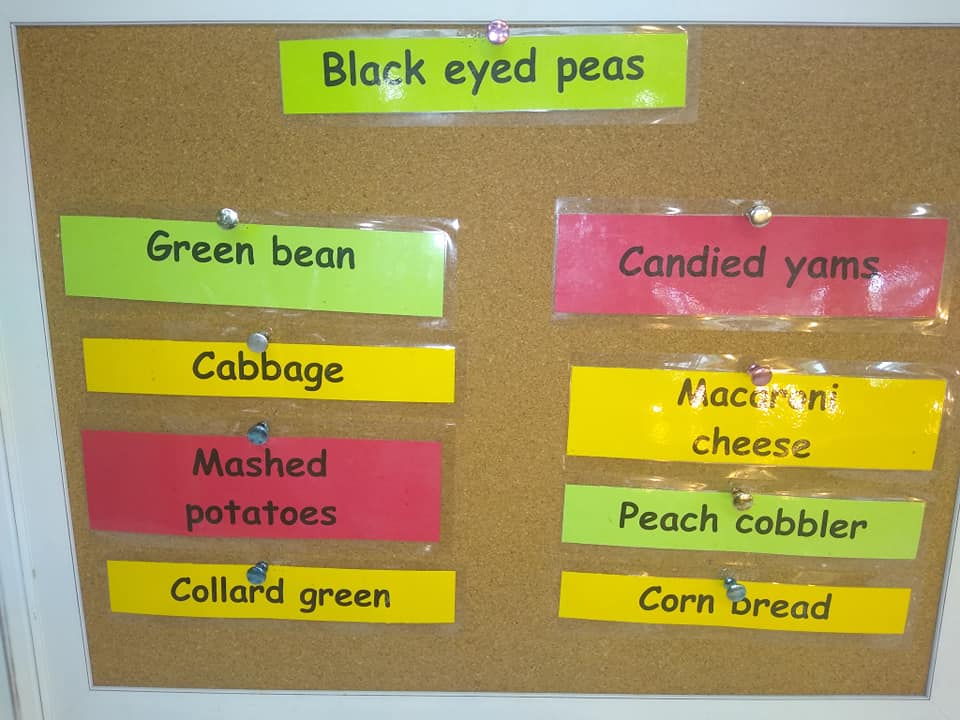 Black eyed peas
Green bean
Cabbage
Mashed
potatoes
Collard green
Candied yams
Macaroni
cheese
Peach cobbler
Corn bread